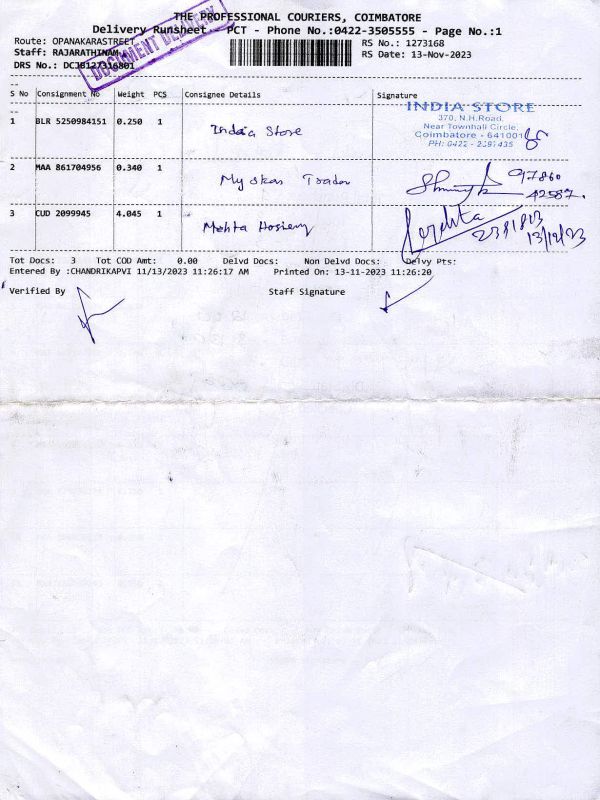 THE PROFESSIONAL COURIERS, COIMBATORE
Delivery Runsheet - PCT - Phone No.:0422-3505555 - Page No.:1
Route: OPANAKARASTREET
RS No.: 1273168
Staff: RAJARATHINAM
RS Date: 13-Nov-2023
DRS No.: DCJB127316801
DOCUMENT DELIVERY
S No Consignment No Weight PCS Consignee Details Signature
1 BLR 5250984151 0.250 1 India Store
INDIA STORE
370, N.H.Road,
Near Townhall Circle,
Coimbatore - 641001
PH: 0422 - 2391435
2 MAA 861704956 0.340 1 97860
42587.
3 CUD 2099945 4.045 1 Mehta Hosiery
2381813
13/12/23
Tot Docs: 3 Tot COD Amt: 0.00 Delvd Docs: Non Delvd Docs: Delvy Pts:
Entered By :CHANDRIKAPVI 11/13/2023 11:26:17 AM Printed On: 13-11-2023 11:26:20
Verified By Staff Signature